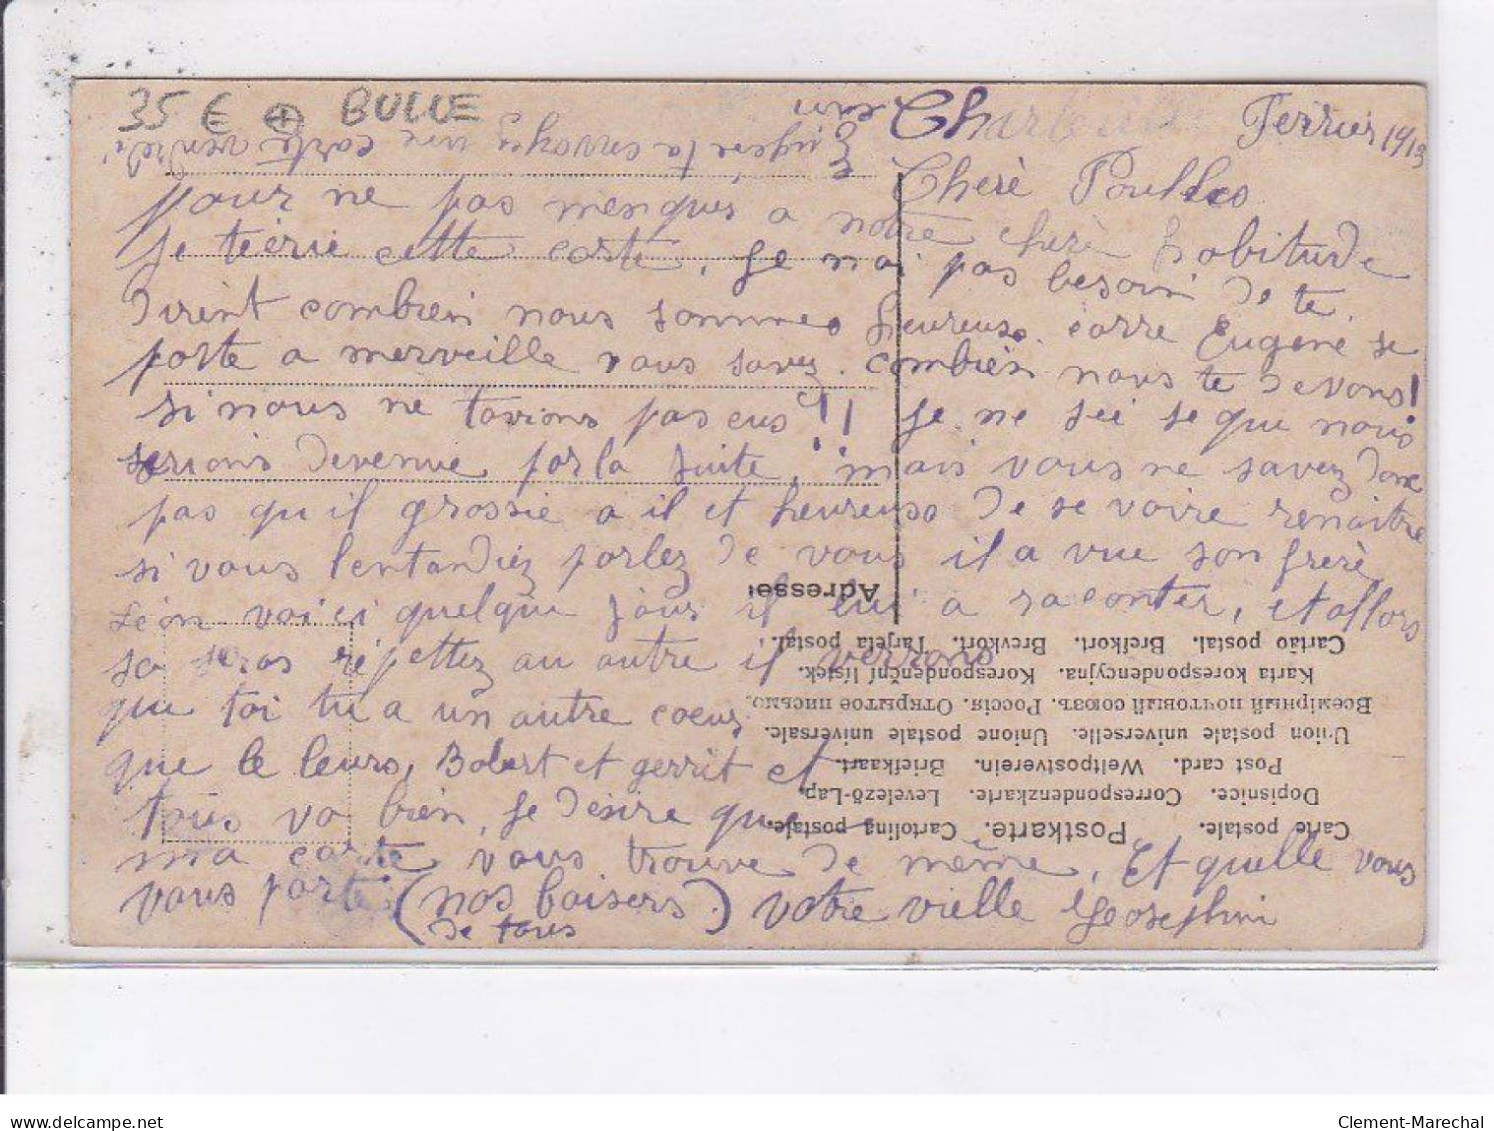 35 € ⊕ BULLE
Ferrier 1913
Eugène ta envoyez une carte vendredi
Cherè Poulles
pour ne pas menques a notre cherè habitude
je téérie cette carte, je nai pas besoin de te
dirént combien nous sommes heureuse carre Eugène se
porte a merveille vous savez combien nous te devons!
si nous ne tavions pas eus!! je ne sei se que nous
serions devenue par la suite, mais vous ne savez donc
pas qu il grossie a il et heureuse de se voire renaitre
si vous lentandiéz parlez de vous il a vue son frerè
Léon voici quelque jours il lui a raconter, et allors
sa seras répettez au autre il verrons
que toi tu a un autre coeur
que le leurs, Bobert et gerrit et
tous va bien, je désire que
ma carte vous trouve de même, Et quelle vous
vous porte (nos baisers de tous) votre vielle Geosephini
Adresse:
Cartão postal. Brefkort. Brevkort. Tarjeta postal.
Karta korespondencyjna. Korespondenční lístek.
Всемірный почтовый союзъ. Россія. Открытое письмо.
Union postale universelle. Unione postale universale.
Post card. Weltpostverein. Briefkaart.
Dopisnice. Correspondenzkarte. Levelező-Lap.
Carte postale. Postkarte. Cartolina postale.
www.delcampe.net
Clement-Marechal